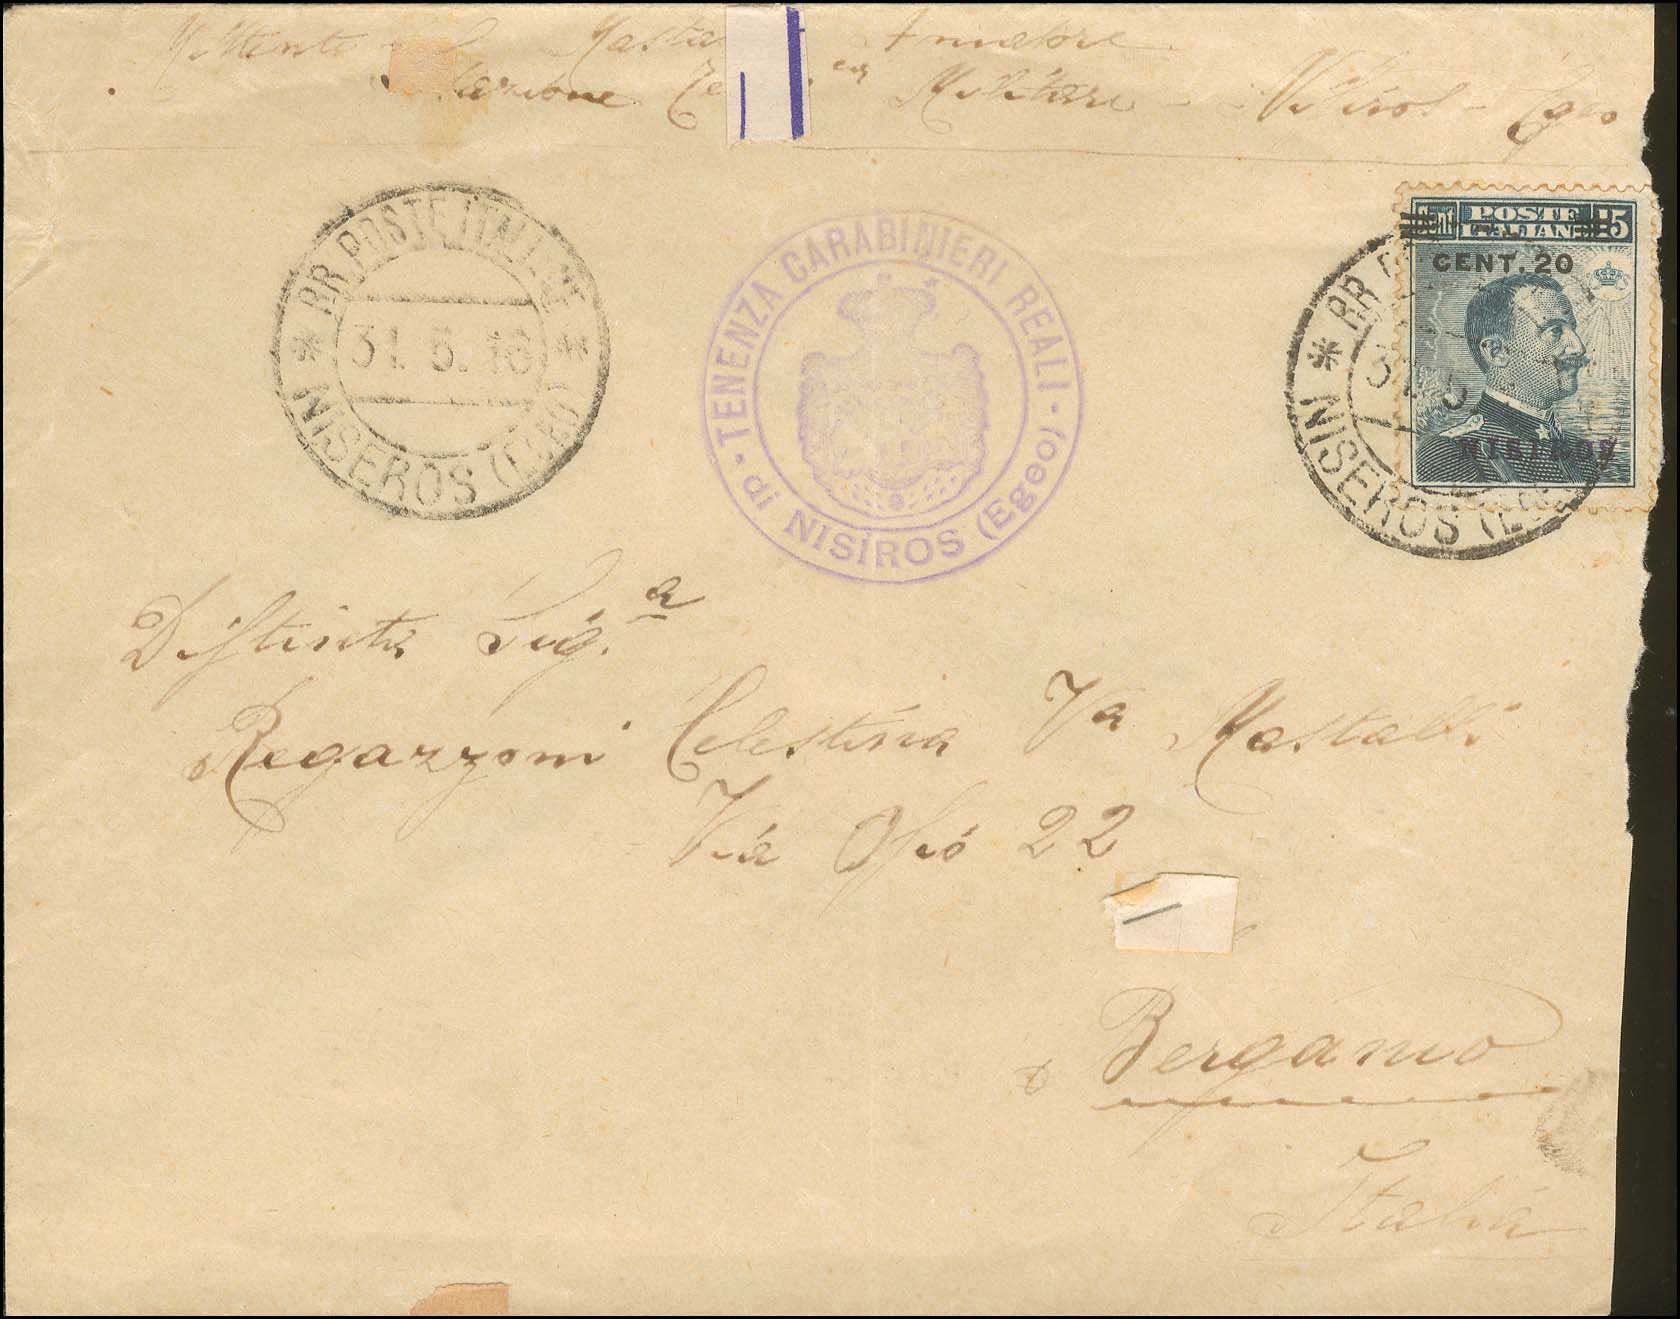 Mittente Amatore
Militare - Nisiros - Egeo
RR POSTE ITALIANE
31. 5. 16
NISEROS (EGEO)
TENENZA CARABINIERI REALI
di NISIROS (Egeo)
Cent POSTE 15
ITALIANE
CENT. 20
NISIROS
RR
31 5
NISEROS (EGEO
Distinta Sig.ª
Regazzoni Celestina Vª Mastalli
Via Osio 22
Bergamo
Italia